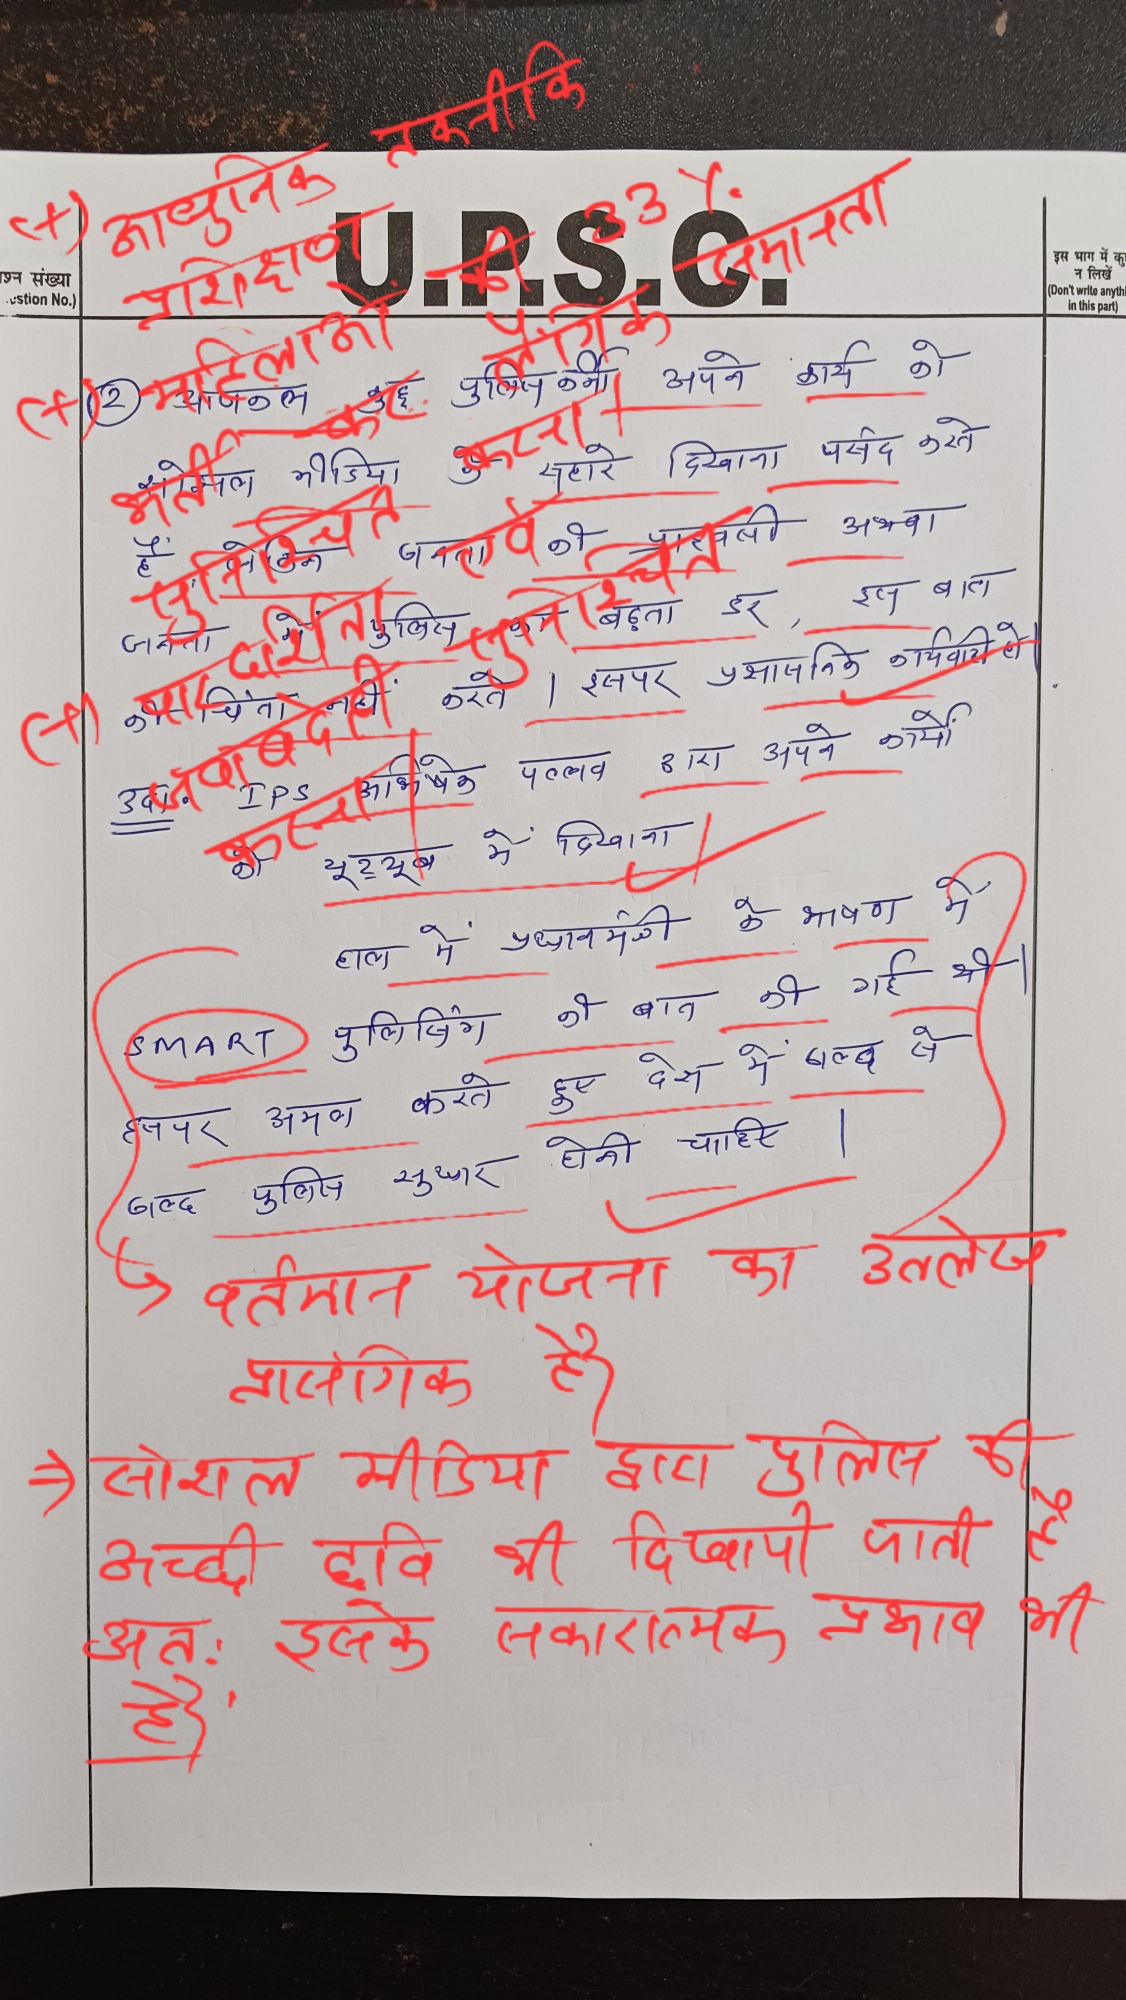 (+) आधुनिक तकनीकि
प्रशिक्षण
U.P.S.C.
प्रश्न संख्या
(Question No.)
इस भाग में कु
न लिखें
(Don't write anyth
in this part)
(+) महिलाओं की 33%
भर्ती कर लैंगिक समानता
सुनिश्चित करना।
(+) पारदर्शिता एवं
जवाबदेही सुनिश्चित
करना।
(2) आजकल कुछ पुलिसकर्मी अपने कार्य को
सोशल मीडिया के सहारे दिखाना पसंद करते
हैं लेकिन जनता की अथवा
जनता में पुलिस का बढ़ता डर, इस बात
की चिंता नहीं करते। इसपर प्रशासनिक कार्यवाही हो।
उदा. IPS अभिषेक पल्लव द्वारा अपने कार्यों
को यूट्यूब में दिखाना।
हाल में प्रधानमंत्री के भाषण में
SMART पुलिसिंग की बात की गई थी।
इसपर अमल करते हुए देश में जल्द से
जल्द पुलिस सुधार होनी चाहिए।
→ वर्तमान योजना का उललेख
प्रासंगिक है।
⇒ सोशल मीडिया द्वारा पुलिस की
अच्छी छवि भी दिखायी जाती है
अतः इसके सकारात्मक प्रभाव भी
हैं।